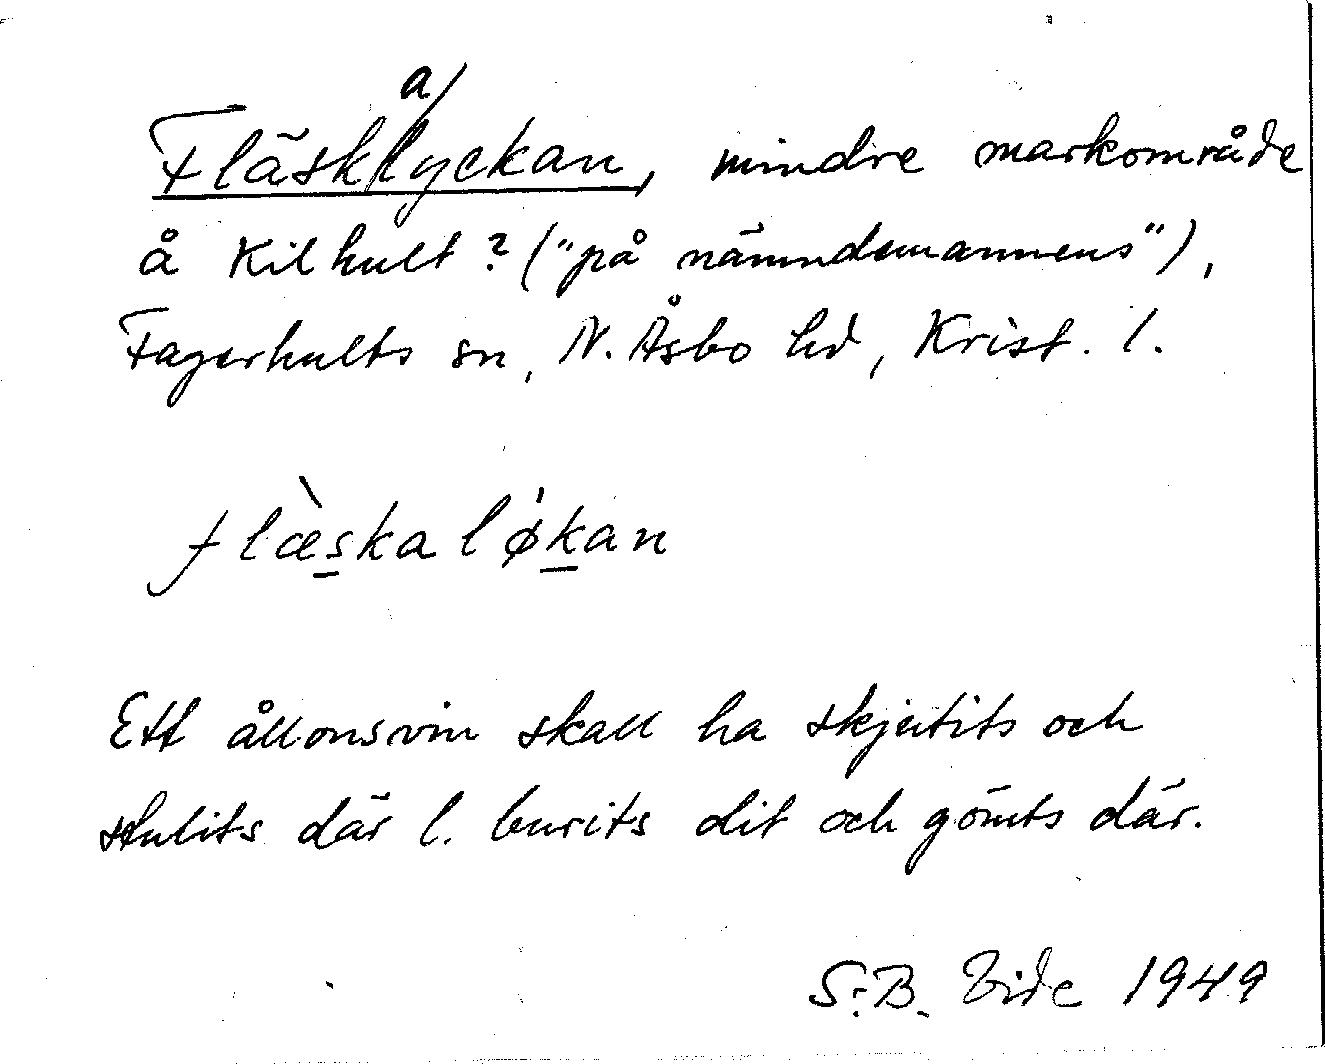 Fläskalyckan, mindre markområde
å Kilhult? ("på nämndemannens"),
Fagerhults sn, N. Åsbo hd, Krist. l.
flæ̀skaløkan
Ett ållonsvin skall ha skjutits och
stulits där l. burits dit och gömts där.
S.B. Vide 1949